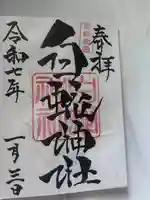 奉拝
白蛇神社
令和七年
一月三日